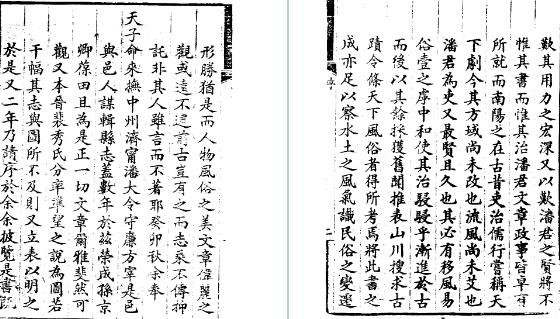 形勝猶是而人物風俗之美文章偉麗之
觀或遠不逮前古豈有之而志乘不傳抑
託非其人雖言而不著耶癸卯秋余奉
天子命來撫中州濟甯潘大令守廉方宰是邑
與邑人謀輯縣志蓋數年於茲榮成孫京
卿葆田且為是正一切文章爾雅斐然可
觀又本晉裴秀氏分率準望之說為圖若
干幅其志與圖所不及則又立表以明之
於是又二年乃請序於余余披覽是書既
歎其用力之宏深又以歎潘君之賢將不
惟其書而惟其治潘君文章政事皆早有
所就而南陽之在古昔吏治儒行嘗稱天
下劇今其方域尚未改也流風尚未艾也
潘君為吏又最賢且久也其必有移風易
俗壹之序中和使其治駸駸乎漸進於古
而後以其餘採獲舊聞推表山川搜求古
蹟令條天下風俗者得所考焉將此書之
成亦足以察水土之風氣識民俗之變遷
二